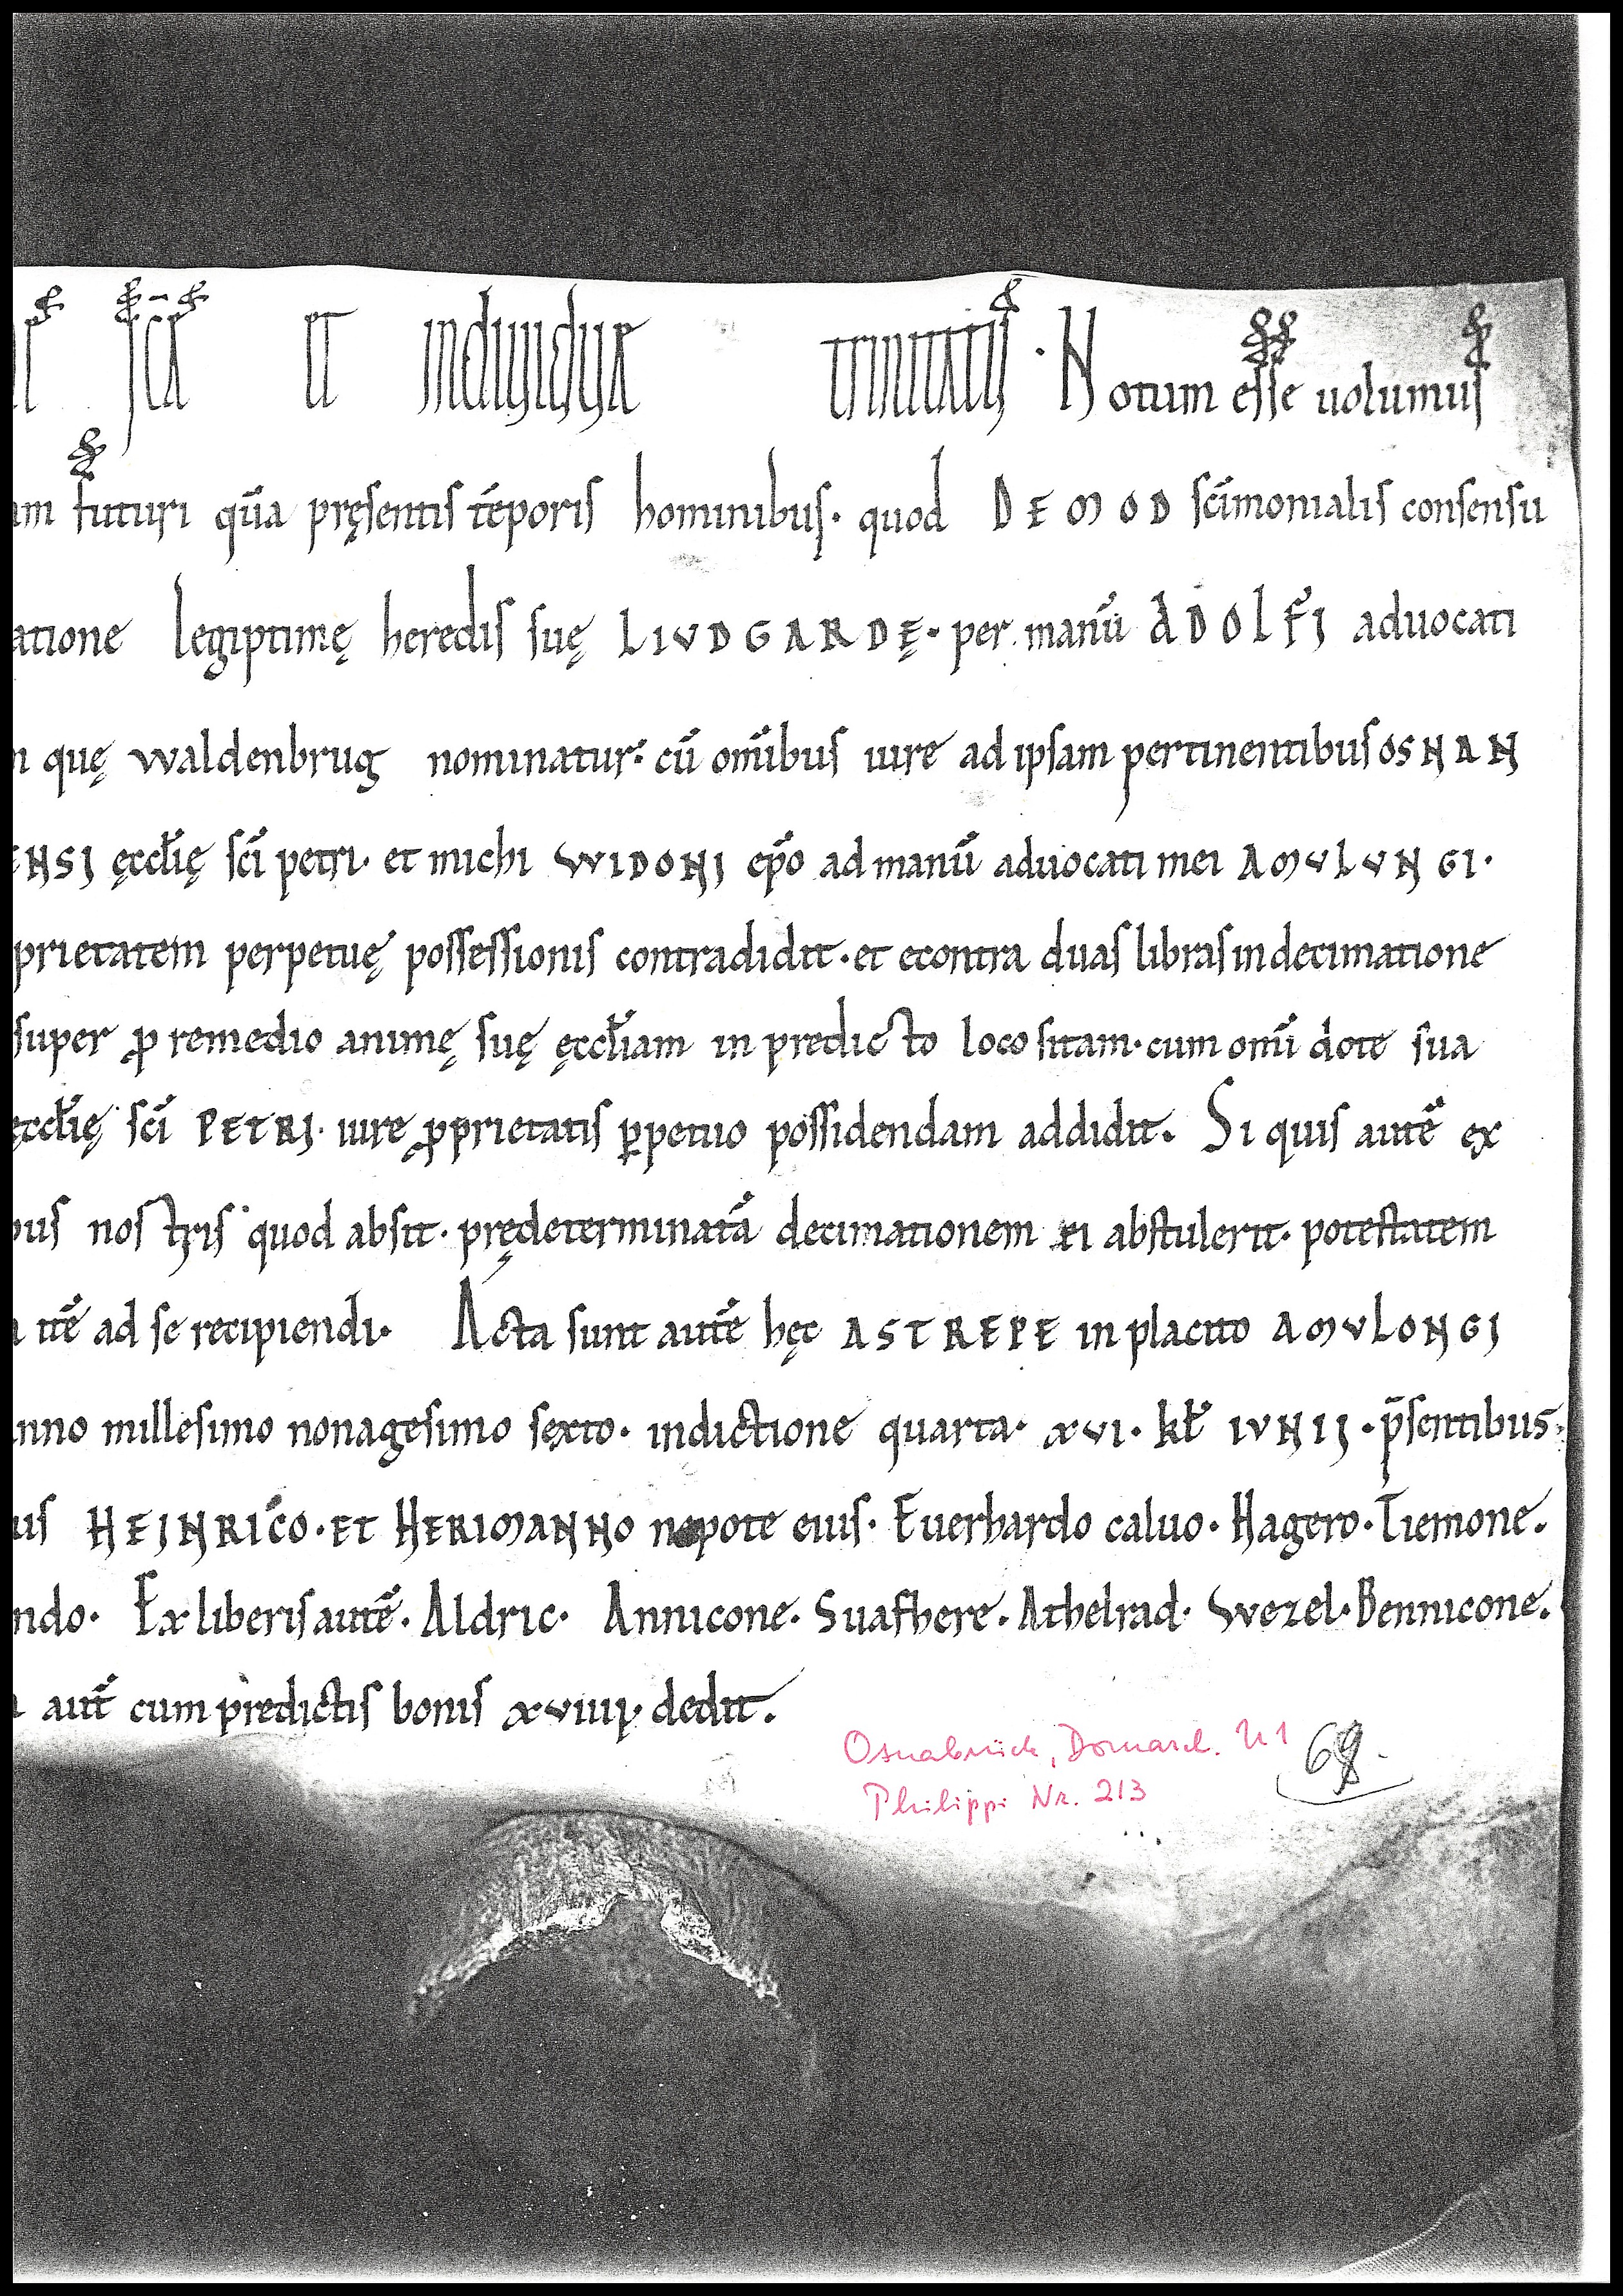 scę et indiuiduę trinitatis · Notum esse uolumus
am futuri quā pręsentis tēporis hominibus · quod DEMOD scīmonialis consensu
atione legiptimę heredis suę LIVDGARDĘ · per manū ADOLFI aduocati
quę waldenbrug nominatur · cū omībus iure ad ipsam pertinentibus OSNAN
ENSI ęcclię scī petri · et michi WIDONI ep̄o ad manū aduocati mei AMVLVNGI ·
prietatem perpetuę possessionis contradidit · et econtra duas libras in decimatione
super ꝓ remedio animę suę ęccliam in predicto loco sitam · cum omī dote sua
ęcclię scī PETRI · iure ꝓprietatis ꝑpetuo possidendam addidit . Si quis autē ex
bus nostris quod absit · prędeterminatā decimationem ei abstulerit · potestatem
itē ad se recipiendi · Acta sunt autē hęc ASTREPE in placito AMVLONGI
nno millesimo nonagesimo sexto · indictione quarta · xvi · kł IVNII · p̄sentibus ·
us HEINRICO · ET HERIMANNO nepote eius · Euerhardo caluo · Hagero · Tiemone .
ndo · Ex liberis autē · Aldric · Annicone · Suafhere . Athelrad · Wezel · Bennicone .
aut̄ cum predictis bonis xviiii · dedit .
Osnabrück, Domarch. U 1
Philippi Nr. 213